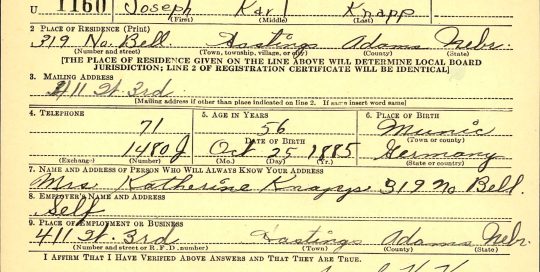 U. 1160 Joseph Karl Knapp
(First) (Middle) (Last)
2 PLACE OF RESIDENCE (Print)
319 No. Bell. Hastings Adams Nebr.
(Number and street) (Town, township, village, or city) (County) (State)
[THE PLACE OF RESIDENCE GIVEN ON THE LINE ABOVE WILL DETERMINE LOCAL BOARD
JURISDICTION; LINE 2 OF REGISTRATION CERTIFICATE WILL BE IDENTICAL]
3. MAILING ADDRESS
411 W. 3rd
[Mailing address if other than place indicated on line 2. If same insert word same]
4. TELEPHONE 5. AGE IN YEARS 6. PLACE OF BIRTH
71 56 Munic
DATE OF BIRTH (Town or county)
1480 J Oct 25 1885 Germany
(Exchange) (Number) (Mo.) (Day) (Yr.) (State or country)
7. NAME AND ADDRESS OF PERSON WHO WILL ALWAYS KNOW YOUR ADDRESS
Mrs. Katherine Knapp 319 No Bell.
8. EMPLOYER'S NAME AND ADDRESS
Self
9. PLACE OF EMPLOYMENT OR BUSINESS
411 W. 3rd Hastings Adams Nebr.
(Number and street or R. F. D. number) (Town) (County) (State)
I AFFIRM THAT I HAVE VERIFIED ABOVE ANSWERS AND THAT THEY ARE TRUE.